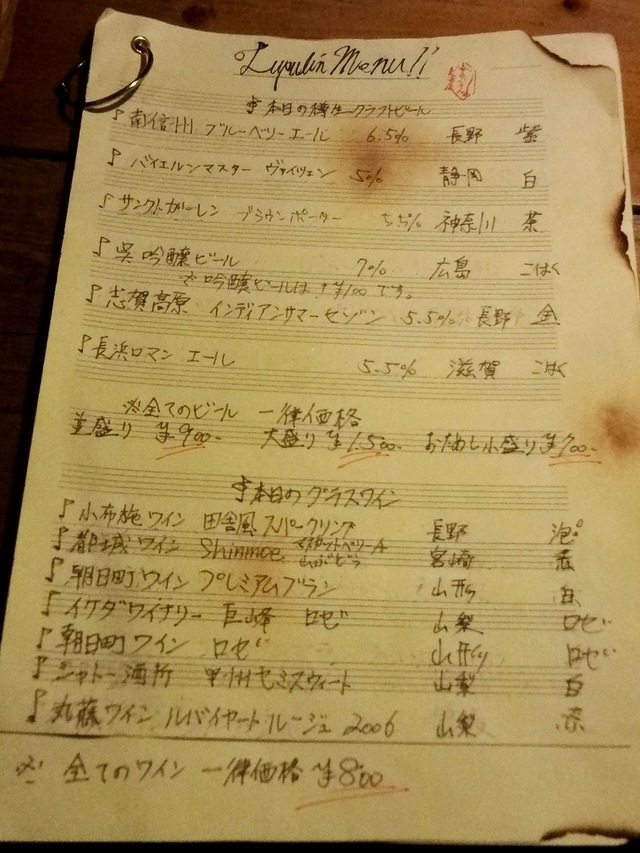 Lupulin Menu!!
本日の樽生クラフトビール
南信州 ブルーベリーエール 6.5% 長野 紫
バイエルンマスター ヴァイツェン 5% 静岡 白
サンクトガーレン ブラウンポーター 5.5% 神奈川 茶
呉吟醸ビール 7% 広島 こはく
※吟醸ビールは+¥100です。
志賀高原 インディアンサマーセゾン 5.5% 長野 金
長浜ロマンエール 5.5% 滋賀 こはく
※全てのビール 一律価格
並盛り ¥900- 大盛り ¥1,500- おためし小盛り ¥700-
本日のグラスワイン
小布施ワイン 田舎風スパークリング 長野 泡
都城ワイン Shinmoe マスカットベリーA 山ぶどう 宮崎 赤
朝日町ワイン プレミアムブラン 山形 白
イケダワイナリー 巨峰 ロゼ 山梨 ロゼ
朝日町ワイン ロゼ 山形 ロゼ
シャトー酒折 甲州セミスウィート 山梨 白
丸藤ワイン ルバイヤートルージュ 2006 山梨 赤
※ 全てのワイン 一律価格 ¥800